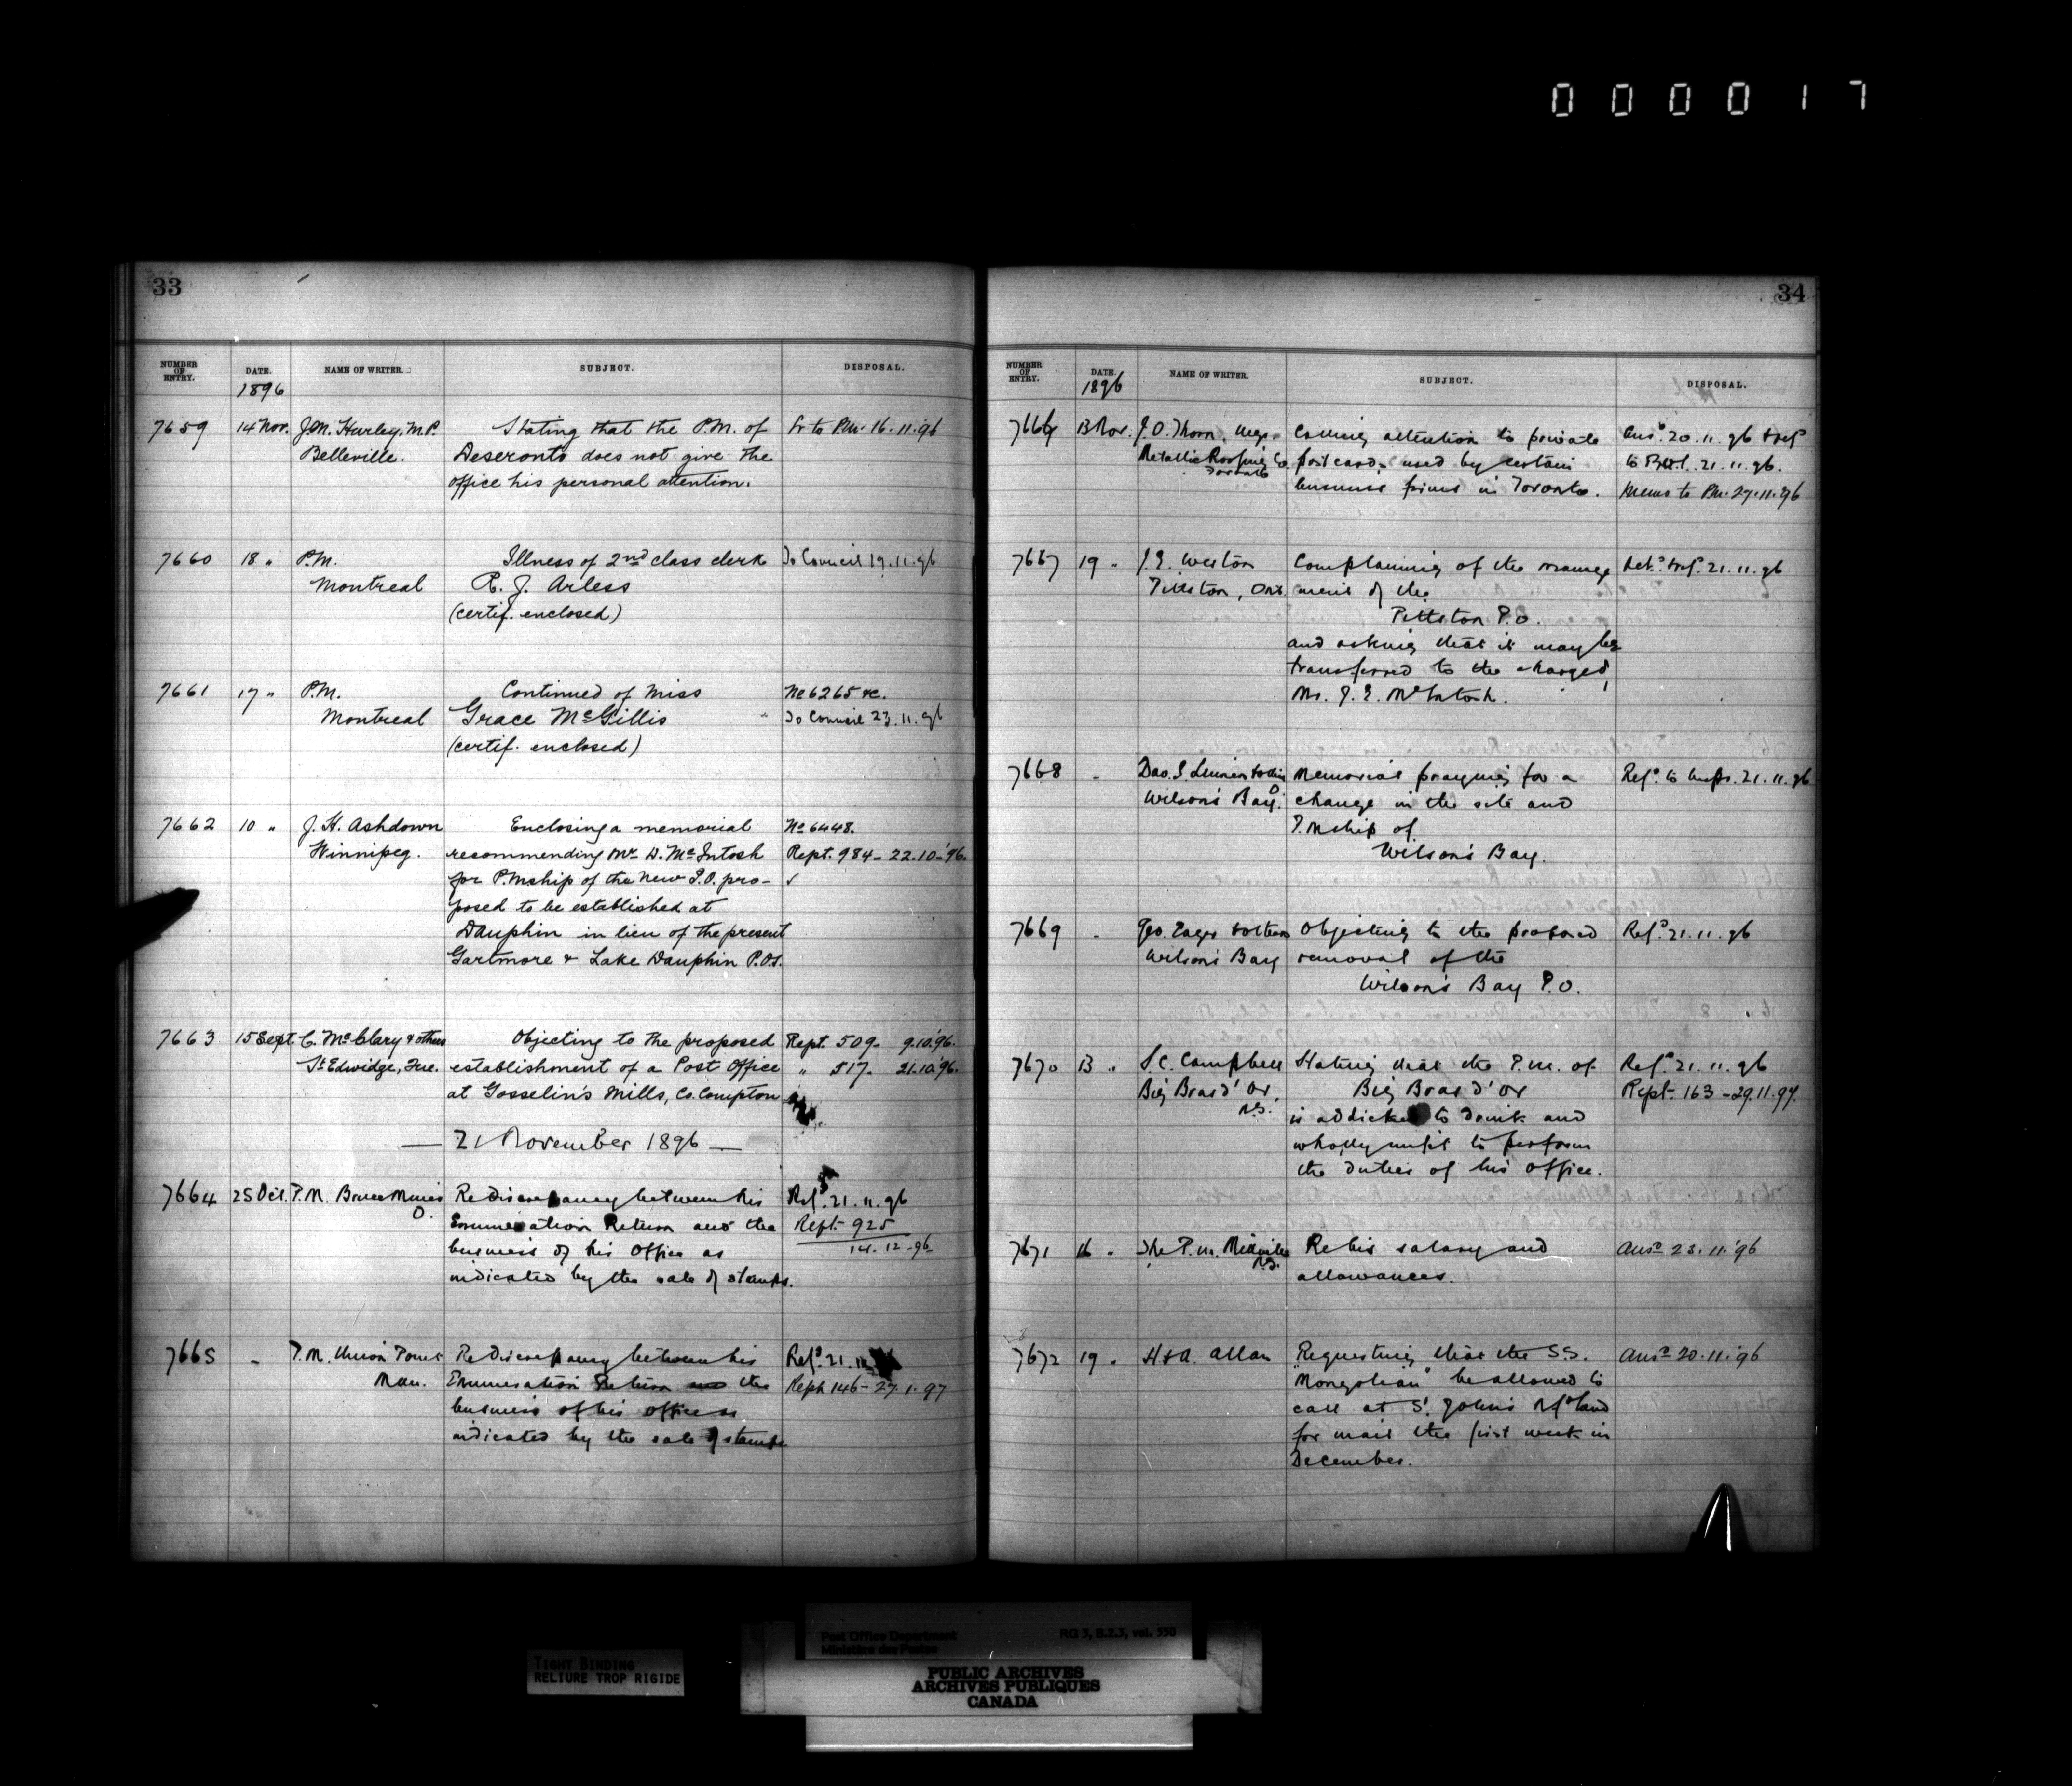 000017
33
NUMBER OF ENTRY. DATE. NAME OF WRITER. SUBJECT. DISPOSAL.
1896
7659 14 Nov. J.M. Hurley, M.P. Stating that the P.M. of Lr to P.M. 16.11.96
Belleville. Deseronto does not give the
office his personal attention.
7660 18 " P.M. Illness of 2nd class clerk To Council 19.11.96
Montreal R. J. Arless
(certif. enclosed)
7661 17 " P.M. Continued of Miss No 6265 &c.
Montreal Grace McGillis " To Council 23.11.96
(certif. enclosed)
7662 10 " J. H. Ashdown Enclosing a memorial No 6448.
Winnipeg. recommending Mr D. McIntosh Rept. 984 - 22.10.'96.
for P.Mship of the new P.O. pro-
posed to be established at
Dauphin in lieu of the present
Gartmore & Lake Dauphin P.Os.
7663 15 Sept. C. McClary & others Objecting to the proposed Rept. 509. 9.10.'96.
St Edwidge, Que. establishment of a Post Office " 517. 21.10.'96.
at Gosselin's Mills, Co. Compton
— 21 November 1896 —
7664 25 Oct. P.M. Bruce Mines Re discrepancy between his Refd. 21.11.96
O. Enumeration Return and the Rept 925
business of his Office as 14-12-96
indicated by the sale of stamps.
7665 " P.M. Union Point Re discrepancy between his Refd. 21.11
Man. Enumeration Return and the Rept 146 - 27.1.97
business of his office as
indicated by the sale of stamps
34
NUMBER OF ENTRY. DATE. NAME OF WRITER. SUBJECT. DISPOSAL.
1896
7666 13 Nov. J. O. Thorn, Mgr. Calling attention to private Ansd. 20.11.96 & refd
Metallic Roofing Co post cards used by certain to 21.11.96.
Toronto business firms in Toronto. Memo to P.M. 27.11.96
7667 19 " J. E. Weston Complaining of the manage Refd. 21.11.96
Pittston, Ont ment of the
Pittston P.O.
and asking that it may be
transferred to the charge of
Mr. J. E. McIntosh.
7668 " Memorial praying for a Refd. to Inspr. 21.11.96
Wilson's Bay. change in the site and
P.Mship of
Wilson's Bay.
7669 " Geo. Eager & others Objecting to the proposed Refd. 21.11.96
Wilson's Bay removal of the
Wilson's Bay P.O.
7670 13 " S. C. Campbell Stating that the P.M. of Refd. 21.11.96
Big Bras d'Or, Big Bras d'Or Rept. 163 - 29.11.97.
N.S. is addicted to drink and
wholly unfit to perform
the duties of his office.
7671 16 " The P.M. Re his salary and Ansd 23.11.'96
N.S. allowances.
7672 19 " H & A. Allan Requesting that the S.S. Ansd 20.11.'96
"Mongolian" be allowed to
call at St. John's Nfdland
for mail the first week in
December.
Post Office Department RG 3, B.2.3, vol. 350
Ministère des Postes
TIGHT BINDING
RELIURE TROP RIGIDE
PUBLIC ARCHIVES
ARCHIVES PUBLIQUES
CANADA